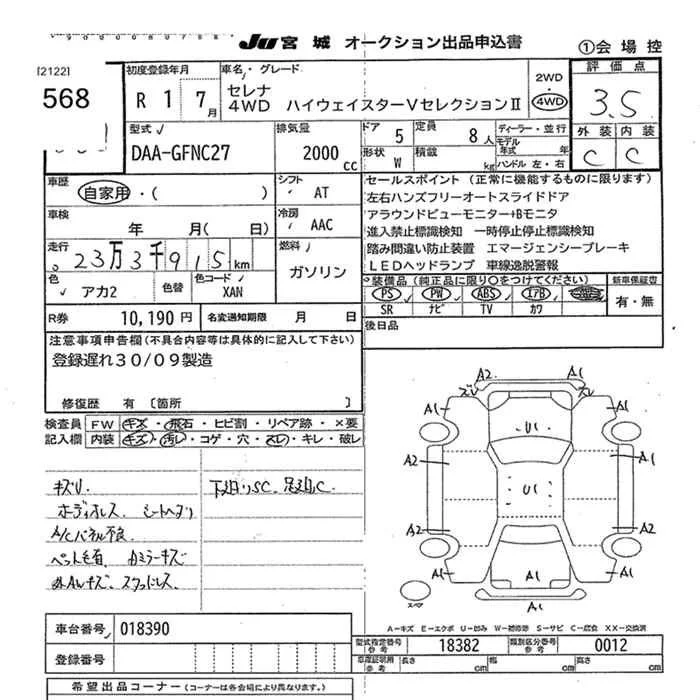 JU 宮城 オークション出品申込書
①会場控
[2122]
568
初度登録年月
R 1 7月
車名・グレード
セレナ
4WD ハイウェイスターVセレクションⅡ
2WD
・
4WD
評価点
3.5
外装 内装
C C
型式
DAA-GFNC27
排気量
2000 cc
ドア 5
定員 8人
形状 W
積載 kg
ディーラー・並行
モデル年式 年
ハンドル 左・右
車歴
自家用・( )
シフト
AT
車検
年 月( 日)
冷房
AAC
走行
23万3千915km
燃料
ガソリン
色
アカ2
色替
色コード
XAN
セールスポイント (正常に機能するものに限ります)
左右ハンズフリーオートスライドドア
アラウンドビューモニター+Bモニタ
進入禁止標識検知 一時停止標識検知
踏み間違い防止装置 エマージェンシーブレーキ
LEDヘッドランプ 車線逸脱警報
装備品 (純正品に限り○をつけてください)
新車保証書
PS PW ABS エアB
有・無
SR ナビ TV カワ
R券 10,190 円
名変通知期限 月 日
後日品
注意事項申告欄 (不具合内容等は具体的に記入して下さい)
登録遅れ30/09製造
修復歴 有 〔箇所 〕
検査員記入欄
FW キズ・飛石・ヒビ割・リペア跡・×要
内装 キズ・汚レ・コゲ・穴・スレ・キレ・破レ
キズU
下廻りSC、足廻C
ボディオレス シートヘタリ
A/Cパネル不良
ペット毛有 カミラーキズ
スタッドレス
A2 A1
ズレ ズレ
A1 A1
U1
A2 A1
U1
A2 A2
A1 A1
A1
A1
スペア
A-キズ E-エクボ U-凹み W-補修跡 S-サビ C-腐食 XX-交換済
車台番号 018390
登録番号
型式指定番号 参考 18382
類別区分番号 参考 0012
車庫証明用 参考 長さ cm 幅 cm 高さ cm
希望出品コーナー (コーナーは各会場により異なります。)